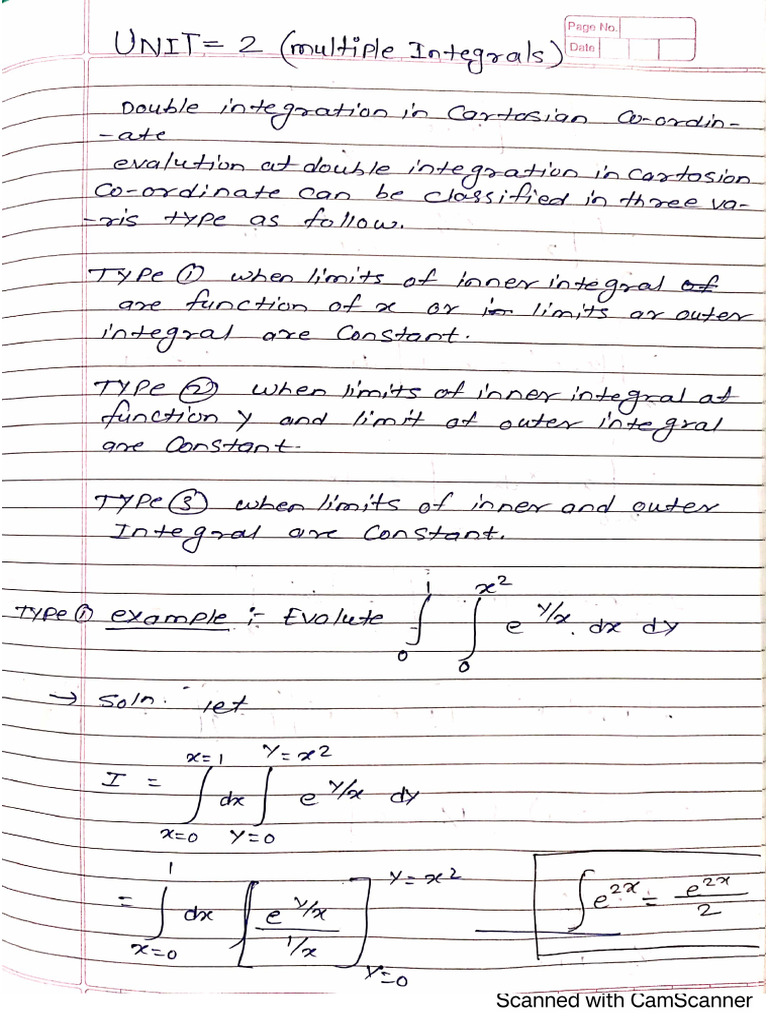 Page No.
Date
UNIT = 2 (multiple Integrals)
Double integration in Cartosian Co-ordin-
-ate
evalution at double integration in cartosion
Co-ordinate can be classified in three va-
-ris type as follow.
TYPE ① when limits of inner integral of
are function of x or in limits ar outer
integral are Constant.
TYPE ② when limits of inner integral at
function y and limit of outer integral
are Constant.
TYPE ③ when limits of inner and outer
Integral are Constant.
TYPE ① example :- Evalute ∫₀¹ ∫₀^{x²} e^{y/x} . dx dy
→ Soln. let
I = ∫_{x=0}^{x=1} dx ∫_{y=0}^{y=x²} e^{y/x} dy
= ∫_{x=0}^{1} dx [e^{y/x} / 1/x]_{y=0}^{y=x²} ∫e^{2x} = e^{2x}/2
Scanned with CamScanner